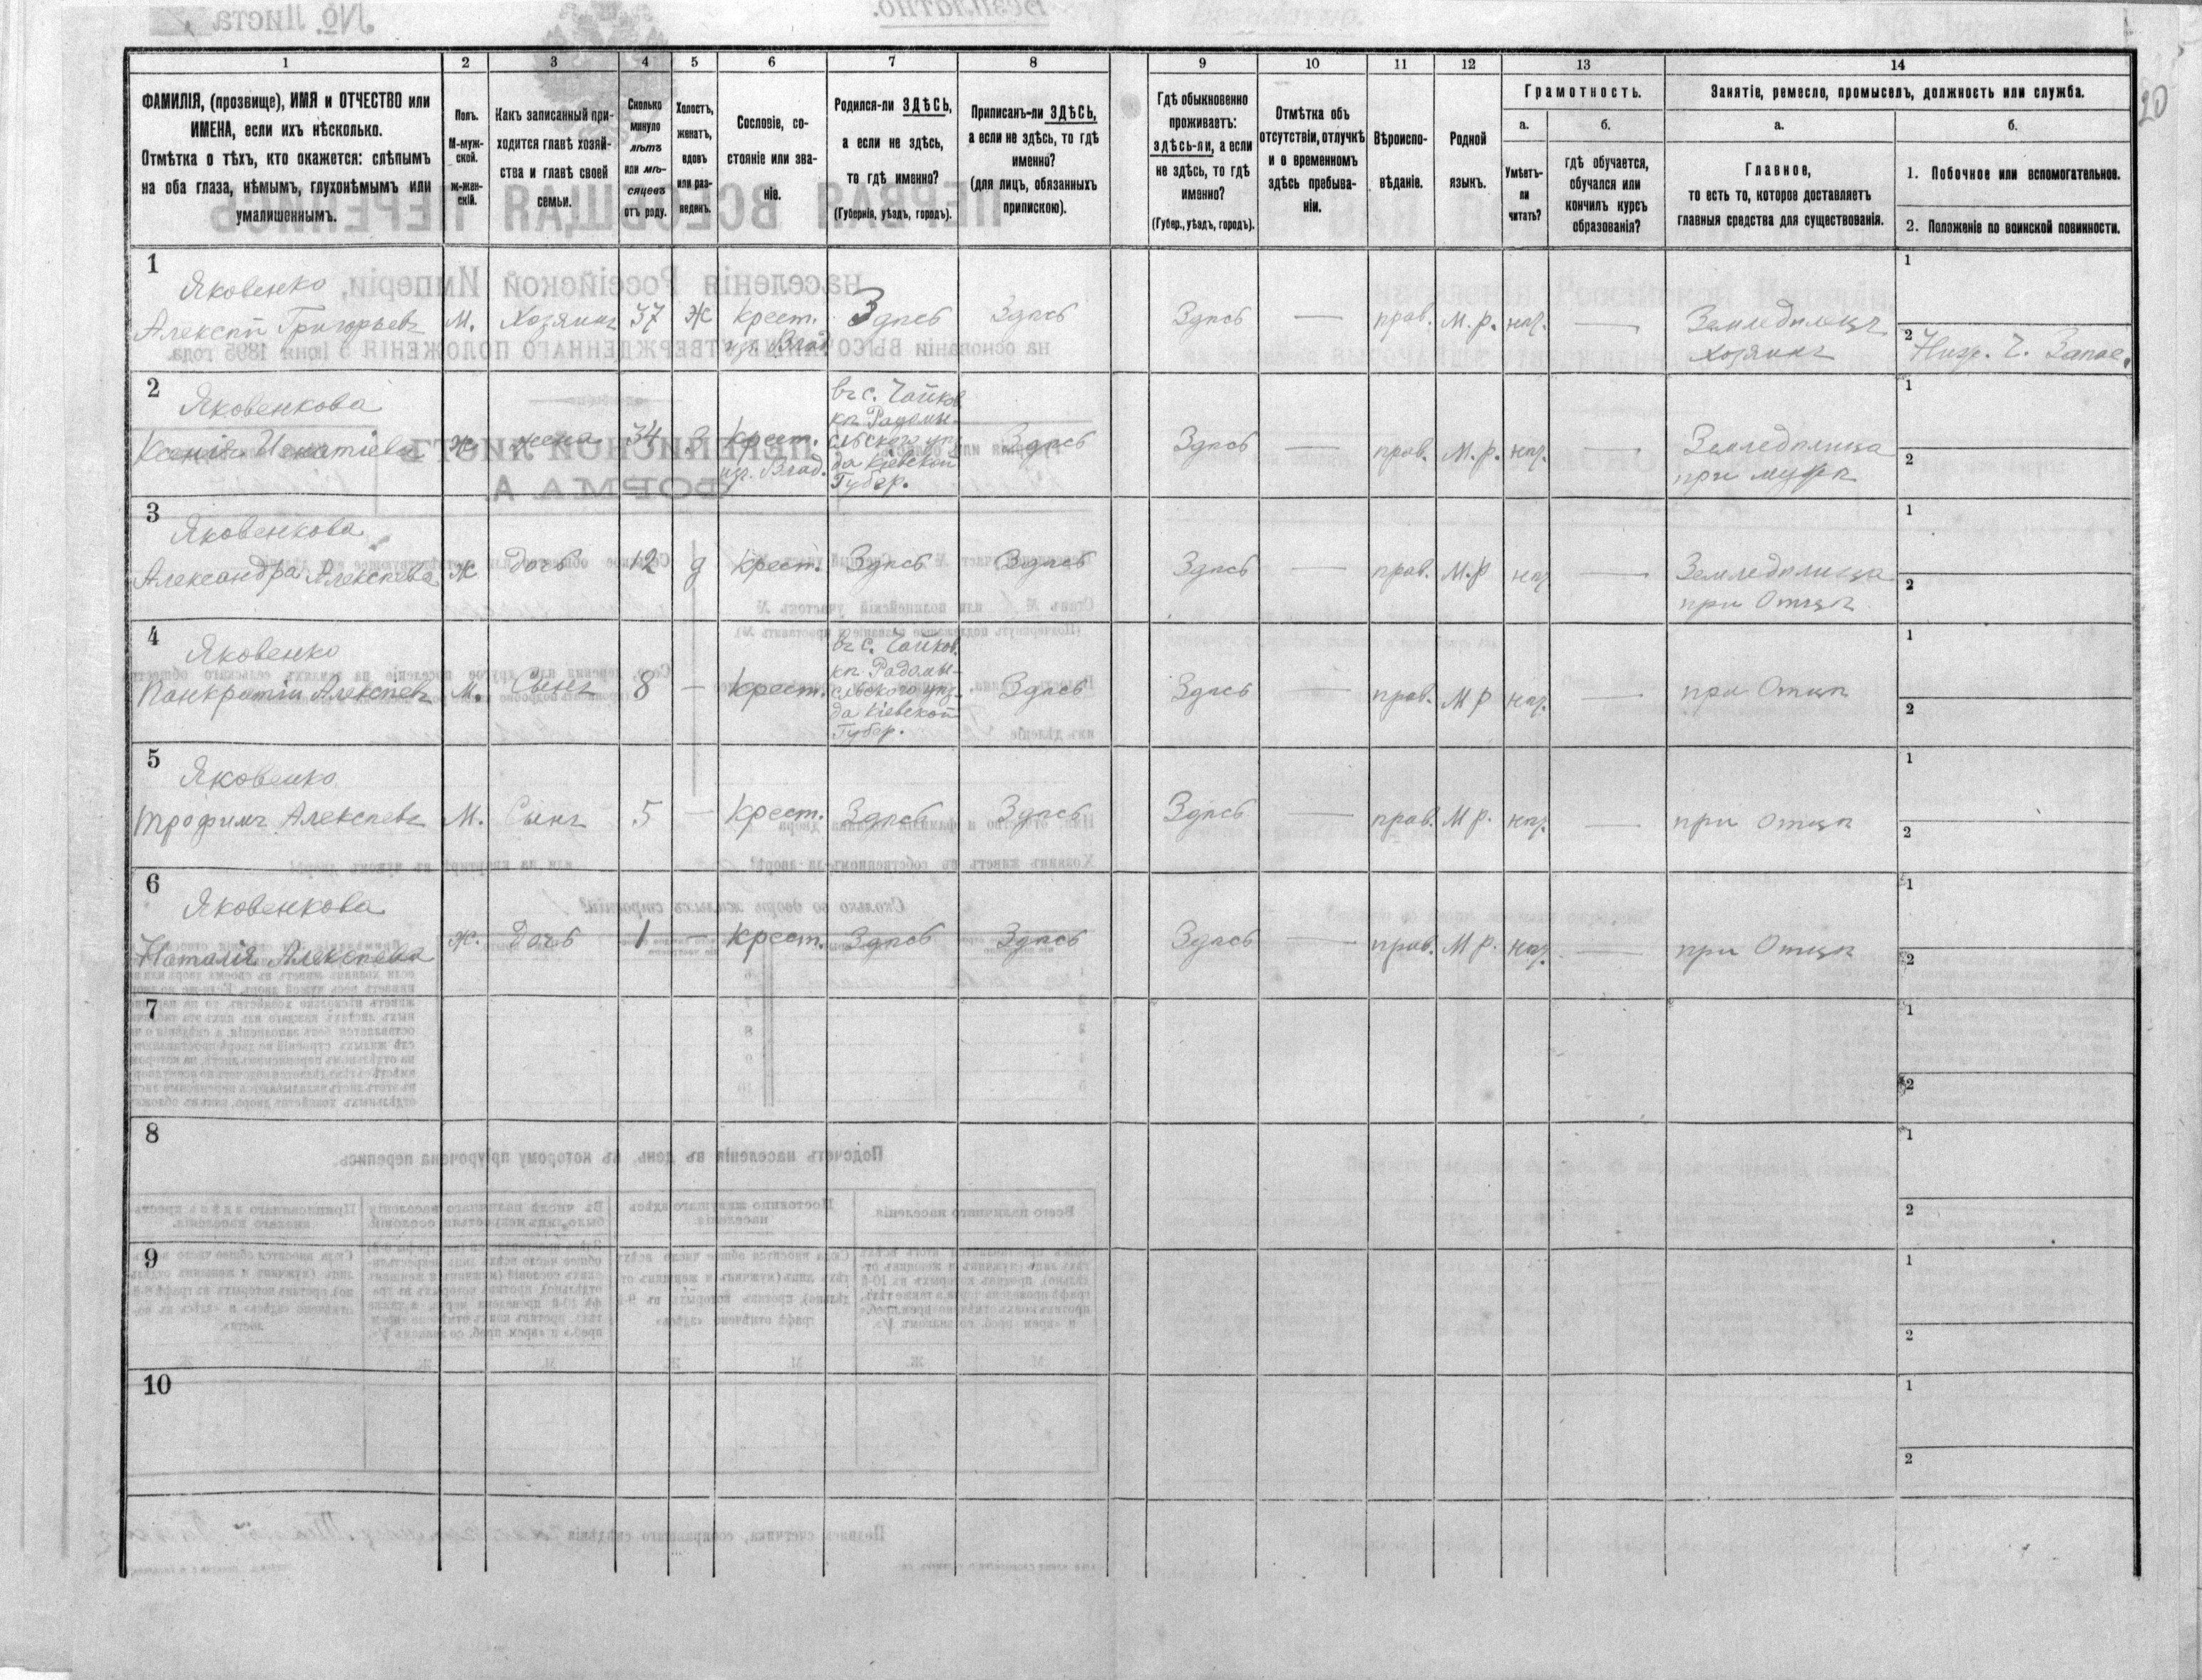 20
1 2 3 4 5 6 7 8 9 10 11 12 13 14
ФАМИЛІЯ, (прозвище), ИМЯ и ОТЧЕСТВО или ИМЕНА, если ихъ нѣсколько.
Отмѣтка о тѣхъ, кто окажется: слѣпымъ на оба глаза, нѣмымъ, глухонѣмымъ или умалишеннымъ.
Полъ.
М-муж-
ской.
Ж-жен-
скій.
Какъ записанный при-
ходится главѣ хозяй-
ства и главѣ своей
семьи.
Сколько
минуло
лѣтъ
или мѣ-
сяцевъ
отъ роду.
Холостъ,
женатъ,
вдовъ
или раз-
веденъ.
Сословіе, со-
стояніе или зва-
ніе.
Родился-ли ЗДѢСЬ,
а если не здѣсь,
то гдѣ именно?
(Губернія, уѣздъ, городъ).
Приписанъ-ли ЗДѢСЬ,
а если не здѣсь, то гдѣ
именно?
(для лицъ, обязанныхъ
припискою).
Гдѣ обыкновенно
проживаетъ:
здѣсь-ли, а если
не здѣсь, то гдѣ
именно?
(Губер., уѣздъ, городъ).
Отмѣтка объ
отсутствіи, отлучкѣ
и о временномъ
здѣсь пребыва-
ніи.
Вѣроиспо-
вѣданіе.
Родной
языкъ.
Грамотность.
а.
Умѣетъ-
ли
читать?
б.
гдѣ обучается,
обучался или
кончилъ курсъ
образованія?
Занятіе, ремесло, промыселъ, должность или служба.
а.
Главное,
то есть то, которое доставляетъ
главныя средства для существованія.
б.
1. Побочное или вспомогательное.
2. Положеніе по воинской повинности.
1
Яковенко
Алексѣй Григорьевъ М. Хозяинъ 37 Ж Крест. Здѣсь Здѣсь Здѣсь — прав. М. р. нѣ. — Земледѣлецъ
из. Влад. хозяинъ
1
2 Низр. Ч. Запас.
2
Яковенкова
Ксенія Игнатіева Ж жена 34 З Крест.
из. Влад.
въ с. Чайков
кѣ Радомы-
сльского уѣз
да Кіевской
Губер.
Здѣсь Здѣсь — прав. М. р. нѣ. — Земледѣлица
при мужѣ
1
2
3
Яковенкова
Александра Алексѣева Ж дочь 12 д Крест. Здѣсь Здѣсь Здѣсь — прав. М. р нѣ — Земледѣлица
при Отцѣ
1
2
4
Яковенко
Панкратій Алексѣевъ М. Сынъ 8 — Крест.
въ с. Чайков.
кѣ Радомы-
сльского уѣз-
да Кіевской
Губер.
Здѣсь Здѣсь — прав. М р нѣ. — при Отцѣ
1
2
5
Яковенко
Трофимъ Алексѣевъ М. Сынъ 5 — Крест. Здѣсь Здѣсь Здѣсь — прав. М р. нѣ. — при Отцѣ
1
2
6
Яковенкова
Наталія Алексѣева Ж. Дочь 1 — Крест. Здѣсь Здѣсь Здѣсь — прав. М р. нѣ. — при Отцѣ
1
2
7
1
2
8
1
2
9
1
2
10
1
2